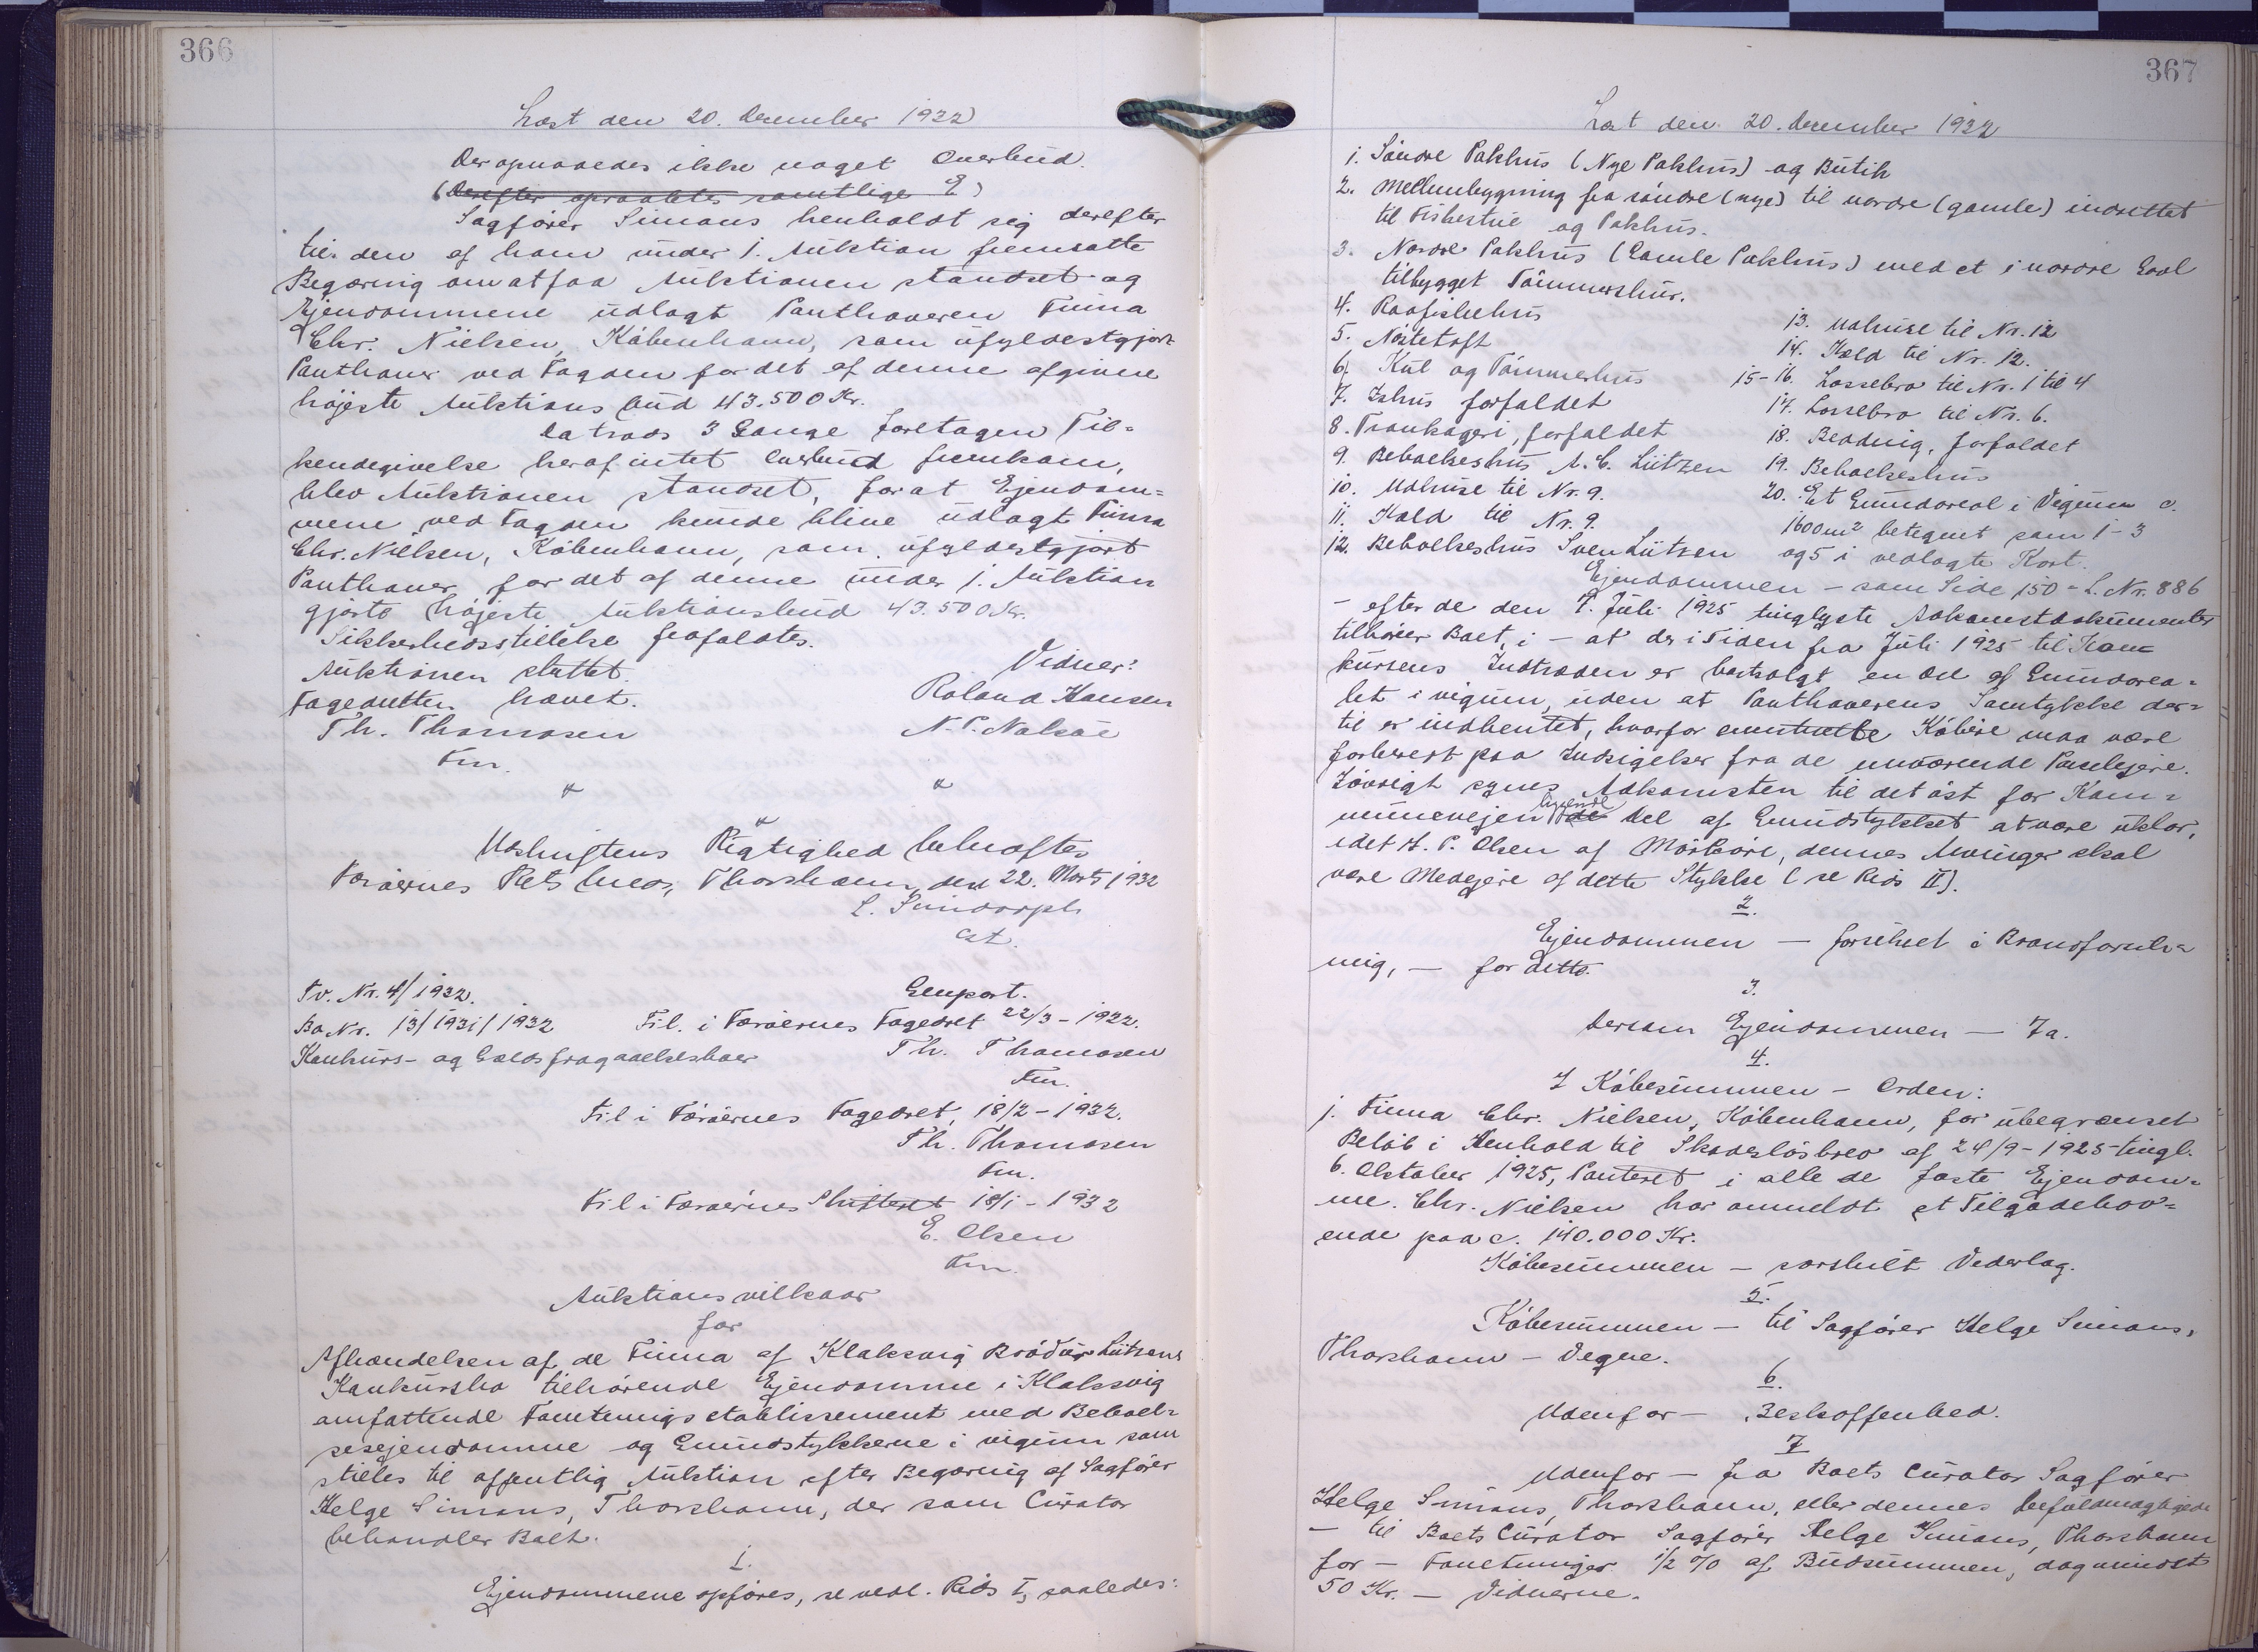 366
Læst den 20. December 1932
Der opnaaedes ikke noget Overbud.
(Derefter opraabtes samtlige E)
Sagfører Simans henholdt sig derefter
til den af ham under 1. Auktion fremsatte
Begæring om at faa Auktionen standset og
Ejendommene udlagt Panthaveren Firma
Chr. Nielsen, København, som ufyldestgjort
Panthaver ved Fogden for det af denne afgivne
højeste Auktions bud 43.500 Kr.
Da trods 3 Gange foretagen Til-
kendegivelse heraf intet Overbud fremkom,
blev Auktionen standset, for at Ejendom-
mene ved Fogden kunde blive udlagt Firma
Chr. Nielsen, København, som ufyldestgjort
Panthaver, for det af denne under 1. Auktion
gjorte højeste Auktionsbud 43.500 Kr.
Sikkerhedsstillelse frafaldtes.
Auktionen sluttet.
Fogedretten hævet.
Th. Thomasen
Fm.
Vidner:
Roland Hansen
N. P. Nolsøe
Udskriftens Rigtighed bekræftes
Færøernes Rets bureau, Thorshavn, den 22. Marts 1932
cst.
Tv. Nr. 4/1932.
Genpart.
Bo Nr. 13/1931/1932
Fil. i Færøernes Fogedret 22/3-1932.
Konkurs- og Gælds fragaaelsesboer
Th. Thomasen
Fm.
Fil i Færøernes Fogedret, 18/2-1932.
Th. Thomasen
Fm.
Fil i Færøernes Skifteret 18/1-1932
E. Olsen
Fm.
Auktions vilkaar
for
Afhændelsen af de Firma af Klaksvig Brødur Lützens
Konkursbo tilhørende Ejendomme i Klaksvig
omfattende Forretnings etablissement med Beboel-
sesejendomme og Grundstykkerne i vigum som
stilles til offentlig Auktion efter Begæring af Sagfører
Helge Simans, Thorshavn, der som Curator
behandler Boet.
1.
Ejendommene opføres, se vedl. Rids I, saaledes:
367
Læst den 20. December 1932
1. Søndre Pakhus (Nye Pakhus) og Butik
2. Mellembygning fra søndre (nye) til nordre (gamle) indrettet
til Fiskestue og Pakhus.
3. Nordre Pakhus (Gamle Pakhus) med et i nordre Gavl
tilbygget Tømmerskur.
4. Raafiskehus
5. Nøstetoft
6. Kul og Tømmerhus
7. Ishus forfaldet
8. Trankogeri, forfaldet
9. Beboelseshus A. C. Lützen
10. Udhuse til Nr. 9.
11. Kæld til Nr. 9.
12. Beboelseshus Sven Lützen
13. Udhuse til Nr. 12
14. Kæld til Nr. 12.
15-16. Lossebro til Nr. 1 til 4
17. Lossebro til Nr. 6.
18. Bedding, forfaldet
19. Beboelseshus
20. Et Grundareal i Vigum c.
1600 m² betegnet som 1-3
og 5 i vedlagte Kort.
Ejendommen - som Side 150 - L. Nr. 886
- efter de den 7. Juli 1925 tinglyste Adkomstdokumenter
tilhører Boet, i - at der i Tiden fra Juli 1925 til Kon-
kursens Indtræden er bortsolgt en Del af Grundarea-
let i vigum, uden at Panthaverens Samtykke der-
til er indhentet, hvorfor eventuelle Købere maa være
forberedt paa Indsigelser fra de nuværende Parcelejere.
Iøvrigt synes Adkomsten til det øst for Kom-
munevejen liggende de Del af Grundstykket at være uklar,
idet H. P. Olsen af Mørkøre, dennes Arvinger skal
være Medejere af dette Stykke (se Rids II).
2.
Ejendommen - forsikret i Brandforsik-
ring, - for ditto.
3.
Dersom Ejendommen - Ja.
4.
I Købesummen - Orden:
1. Firma Chr. Nielsen, København, for ubegrænset
Beløb i Henhold til Skadesløsbrev af 24/9-1925 tingl.
6. Oktober 1925, Panteret i alle de faste Ejendom-
me. Chr. Nielsen har anmeldt et Tilgodehav-
ende paa c. 140.000 Kr.
Købesummen - særskilt Vederlag.
5.
Købesummen - til Sagfører Helge Simans,
Thorshavn - Vegne.
6.
Udenfor - Beskaffenhed.
7
Udenfor - fra Boets Curator Sagfører
Helge Simans, Thorshavn, eller dennes befuldmægtigede
- til Boets Curator Sagfører Helge Simans, Thorshavn
for - Forretninger 1/2 % af Budsummen, dog mindst
50 Kr. - Vidnerne.